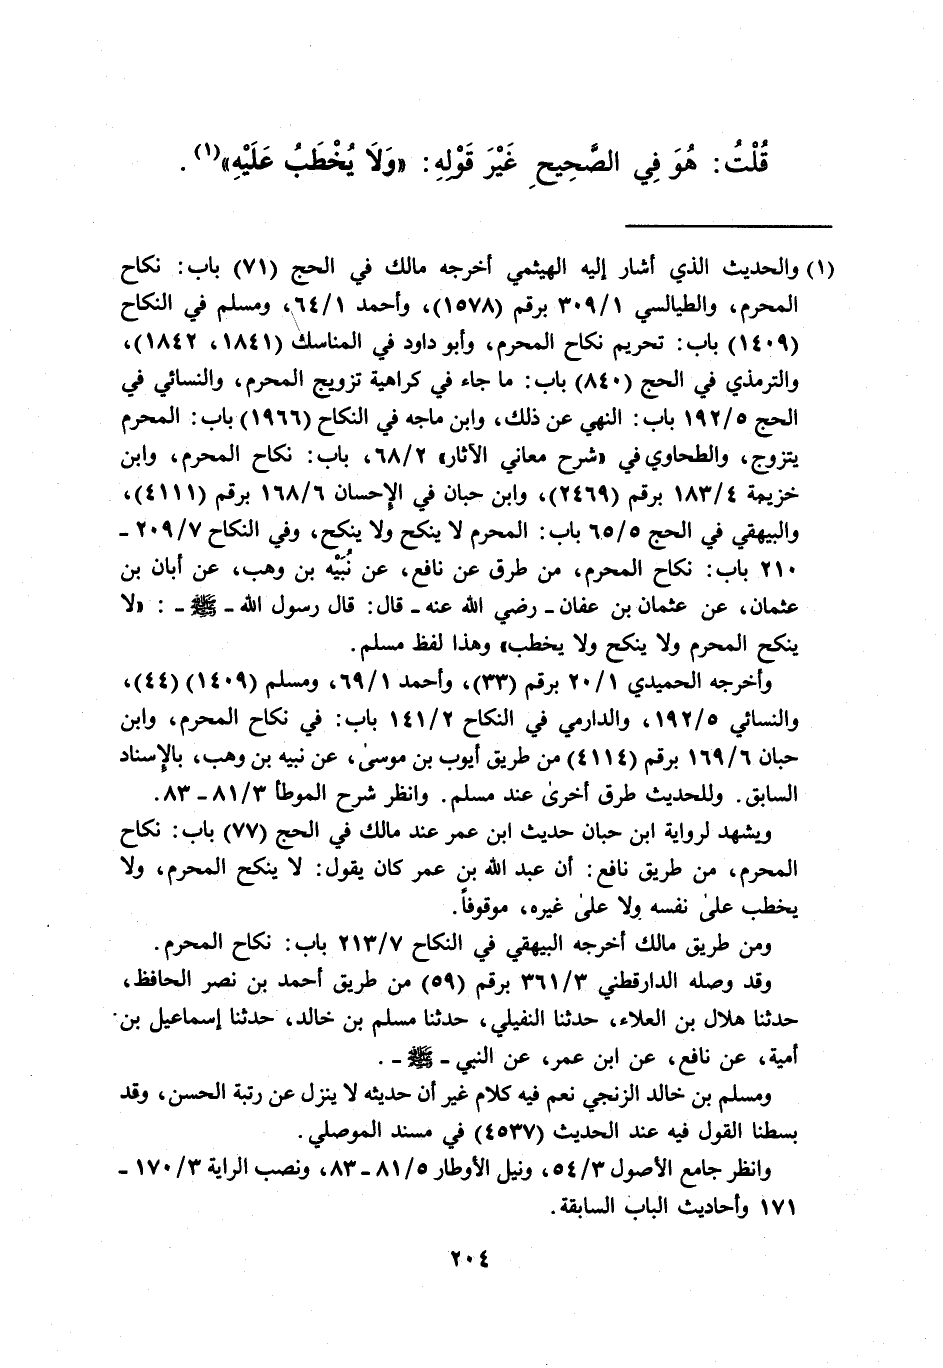 قُلْتُ: هُوَ فِي الصَّحِيحِ غَيْرَ قَوْلِهِ: «وَلَا يُخْطَبُ عَلَيْهِ»(١).
(١) والحديث الذي أشار إليه الهيثمي أخرجه مالك في الحج (٧١) باب: نكاح
المحرم، والطيالسي ٣٠٩/١ برقم (١٥٧٨)، وأحمد ٦٤/١، ومسلم في النكاح
(١٤٠٩) باب: تحريم نكاح المحرم، وأبو داود في المناسك (١٨٤١، ١٨٤٢)،
والترمذي في الحج (٨٤٠) باب: ما جاء في كراهية تزويج المحرم، والنسائي في
الحج ١٩٢/٥ باب: النهي عن ذلك، وابن ماجه في النكاح (١٩٦٦) باب: المحرم
يتزوج، والطحاوي في «شرح معاني الآثار» ٦٨/٢، باب: نكاح المحرم، وابن
خزيمة ١٨٣/٤ برقم (٢٤٦٩)، وابن حبان في الإحسان ١٦٨/٦ برقم (٤١١١)،
والبيهقي في الحج ٦٥/٥ باب: المحرم لا ينكح ولا ينكح، وفي النكاح ٢٠٩/٧ -
٢١٠ باب: نكاح المحرم، من طرق عن نافع، عن نُبَيْه بن وهب، عن أبان بن
عثمان، عن عثمان بن عفان - رضي الله عنه - قال: قال رسول الله - ﷺ - : «لا
ينكح المحرم ولا ينكح ولا يخطب» وهذا لفظ مسلم.
وأخرجه الحميدي ٢٠/١ برقم (٣٣)، وأحمد ٦٩/١، ومسلم (١٤٠٩) (٤٤)،
والنسائي ١٩٢/٥، والدارمي في النكاح ١٤١/٢ باب: في نكاح المحرم، وابن
حبان ١٦٩/٦ برقم (٤١١٤) من طريق أيوب بن موسىٰ، عن نبيه بن وهب، بالإسناد
السابق. وللحديث طرق أخرىٰ عند مسلم. وانظر شرح الموطأ ٨١/٣ - ٨٣.
ويشهد لرواية ابن حبان حديث ابن عمر عند مالك في الحج (٧٧) باب: نكاح
المحرم، من طريق نافع: أن عبد الله بن عمر كان يقول: لا ينكح المحرم، ولا
يخطب علىٰ نفسه ولا علىٰ غيره، موقوفاً.
ومن طريق مالك أخرجه البيهقي في النكاح ٢١٣/٧ باب: نكاح المحرم.
وقد وصله الدارقطني ٣٦١/٣ برقم (٥٩) من طريق أحمد بن نصر الحافظ،
حدثنا هلال بن العلاء، حدثنا النفيلي، حدثنا مسلم بن خالد، حدثنا إسماعيل بن
أمية، عن نافع، عن ابن عمر، عن النبي - ﷺ - .
ومسلم بن خالد الزنجي نعم فيه كلام غير أن حديثه لا ينزل عن رتبة الحسن، وقد
بسطنا القول فيه عند الحديث (٤٥٣٧) في مسند الموصلي.
وانظر جامع الأصول ٥٤/٣، ونيل الأوطار ٨١/٥ - ٨٣، ونصب الراية ١٧٠/٣ -
١٧١ وأحاديث الباب السابقة.
٢٠٤